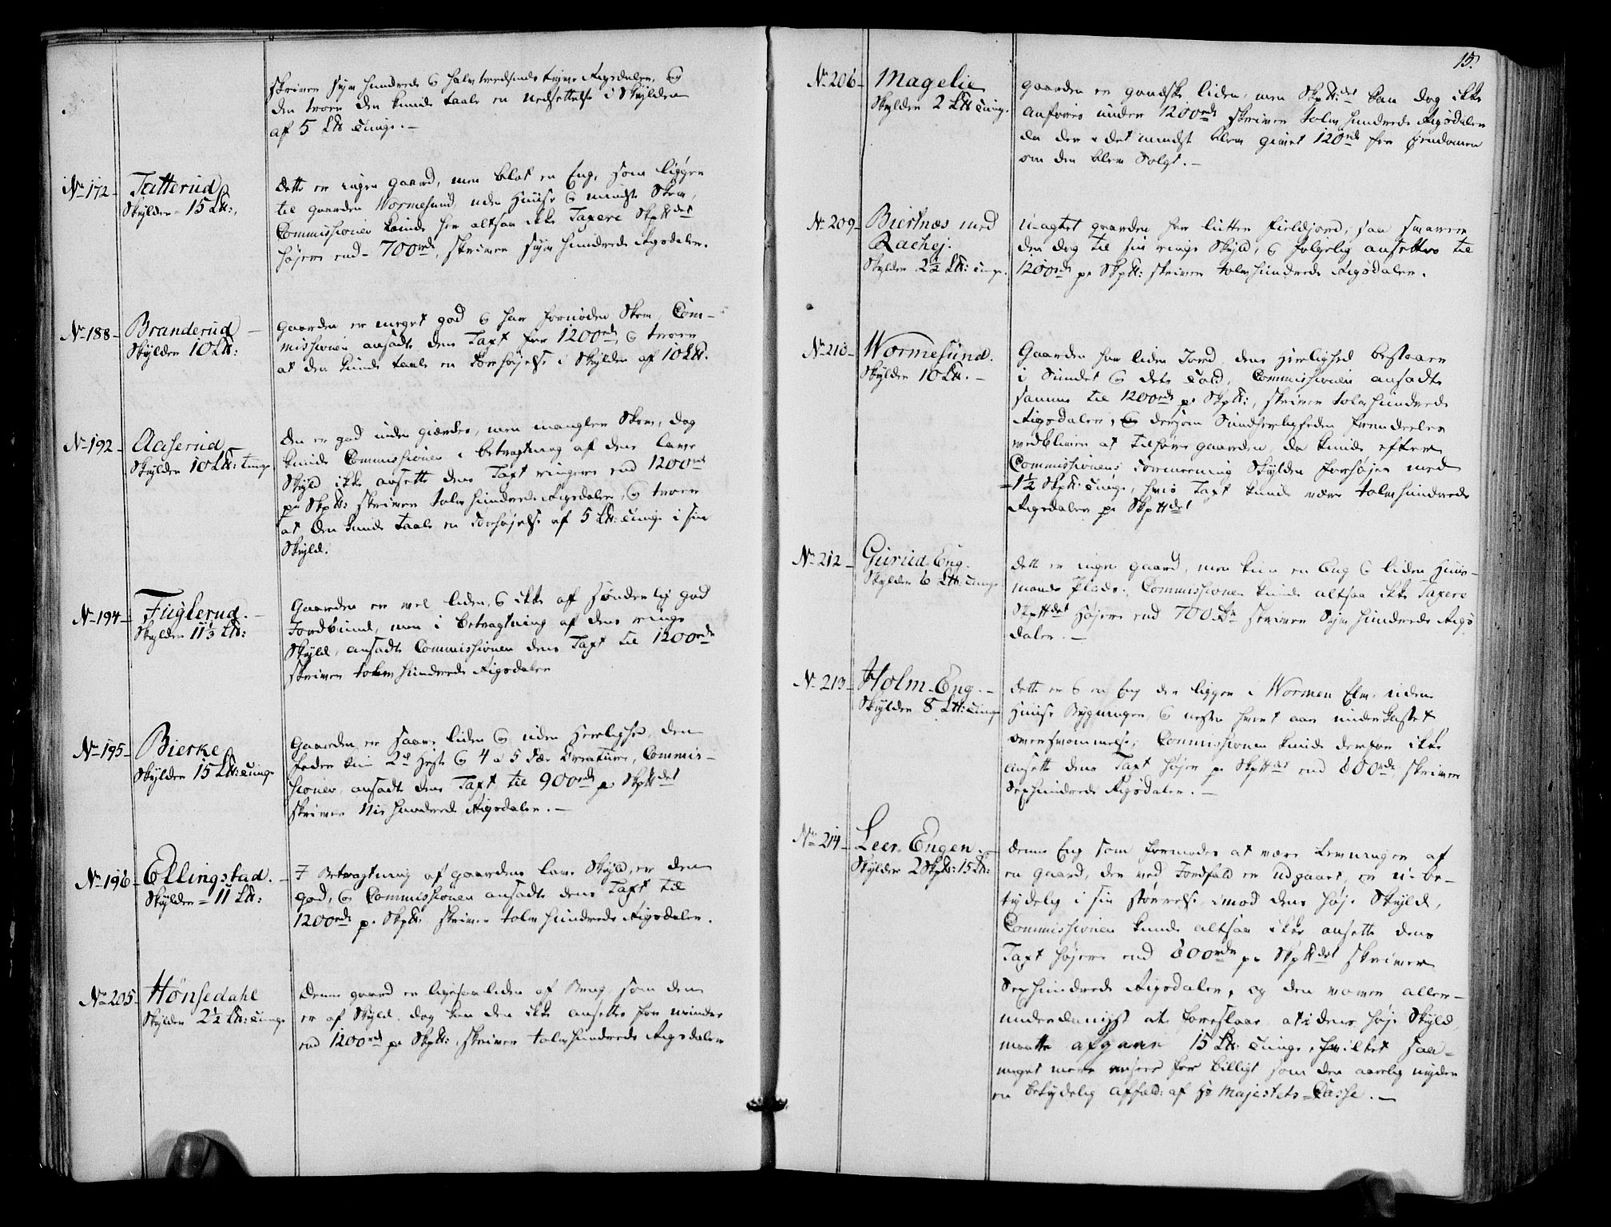 skriver syv hundrede & halvtredsindstyve Rigsdaler, &
den troer den kunde taale en nedsettelse i Skylden
af 5 L℔ Tunge. —
No 172 - Tatterud
Skylder - 15 L℔:
dette er ingen gaard, men blot en Eng, som ligger
til gaarden Wormesund uden Huuse & mindste Skov,
Commissionen kunde her altsaa ikke Taxere Skp℔det
højere end - 700rd, skriver syv hundrede Rigsdaler.
No 188 - Branderud —
Skylder 10 L℔:
Gaarden er meget god & har fornøden Skov, Com-
missionen ansadte dens Taxt for 1200rd, & troer
at den kunde taale en Forhøjelse i Skylden af 10 L℔.
No 192 - Aaserud
Skylder 10 L℔: Tunge
den er god uden gierder, men mangler Skov, dog
kunde Commissionen i betragtning af dens lave
Skyld ikke ansette dens Taxt ringere end 1200rd
pr Skp℔: skriver tolv hundrede Rigsdaler, & troer
at den kunde taale en Forhøjelse af 5 L℔: Tunge i sin
Skyld.
No 194 - Fuglerud. —
Skylder 11½ L℔:
Gaarden er vel liden, & ikke af synderlig god
Jordbund, men i betragtning af dens ringe
Skyld, ansadte Commissionen dens Taxt til 1200rd
skriver tolv hundrede Rigsdaler
No 195 - Bierke
Skylder 15 L℔: Tunge
Gaarden er saare liden & uden Herlighed, den
føder kun 2de Heste & 4 a 5 Creature, Commis-
sionen ansadte dens Taxt til 900rd pr Skp℔det
skriver Nie hundrede Rigsdaler. —
No 196 - Ellingstad. —
Skylder - 11 L℔:
I Betragtning af gaardens lave Skyld, er den
god, & Commissionen ansadte dens Taxt til
1200rd pr Skp℔: skriver tolv hundrede Rigsdaler.
No 205 - Hønsedahl
Skylder 2½ L℔: Tunge
Denne gaard er ligesaa liden af Brug, som den
er af Skyld, dog kan den ikke ansettes for mindre
end 1200rd pr Skp℔: skriver tolv hundrede Rigsdaler
15.
No 206 - Magelie
Skylder 2 L℔ Tunge.
Gaarden er gandske liden, men Skp℔:det kan dog ikke
anføres under 1200rd skriver tolv hundrede Rigsdaler
da der i det mindste blev givet 120rd for Eiendomen
om den blev Solgt. —
No 209 - Biertnæs med
Rachej.
Skylder 2½ L℔: Tunge.
Uagtet gaarden har liden Fieldjord, saa svarer
den dog til sin ringe Skyld, & følgelig ansettes til
1200rd pr Skp℔: skriver tolv hundrede Rigsdaler.
No 210 - Wormesund.
Skylder 10 L℔. —
Gaarden har liden Jord dens Herlighed bestaaer
i Sundet & dets Told, Commissionen ansadte
samme til 1200rd pr Skp℔:, skriver tolv hundrede
Rigsdaler, & dersom Sundherligheden fremdeles
vedbliver at tilhøre gaarden, da kunde efter
Commissionens Formeening Skylden forhøjes med
- 1½ Skp℔: Tunge, hvis Taxt kunde være tolv hundrede
Rigsdaler pr Skp℔det
No 212 - Gurud-Eng.
Skylder 6 L℔: Tunge
dette er ingen gaard, men kun en Eng & liden Huus-
mands Plads, Commissionen kunde altsaa ikke Taxere
Skp℔det højere end 700 Rd skriver Syv hundrede Rigs
daler. —
No 213 - Holm-Eng. —
Skylder 8 L℔: Tunge
dette er & en Eng der ligger i Wormen Elv, uden
Huuse Bygninger, & nesten hvert aar underkastet
oversvømmelse, Commissionen kunde derfor ikke
ansette dens Taxt højer pr Skp℔det end 600rd, skriver
Sexhundrede Rigsdaler. —
No 214 - Leer-Engen. —
Skylder 2 Skp℔: 15 L℔:
denne Eng som formodes at være Levninger af
en gaard, der ved Jordfald er udgaaet, er u-be-
tydelig i sin størrelse imod dens høje Skyld,
Commissionen kunde altsaa ikke ansette dens
Taxt højere end 600rd pr Skp℔det skriver
Sexhundrede Rigsdaler, og den vover aller-
underdanigst at foreslaae at i dens høje Skyld
maatte afgaae 15 L℔: Tunge, hvilket saa-
meget mere ansees for billigt som den aarlig nyder
en betydelig affald af Hs Majestets-Casse. —